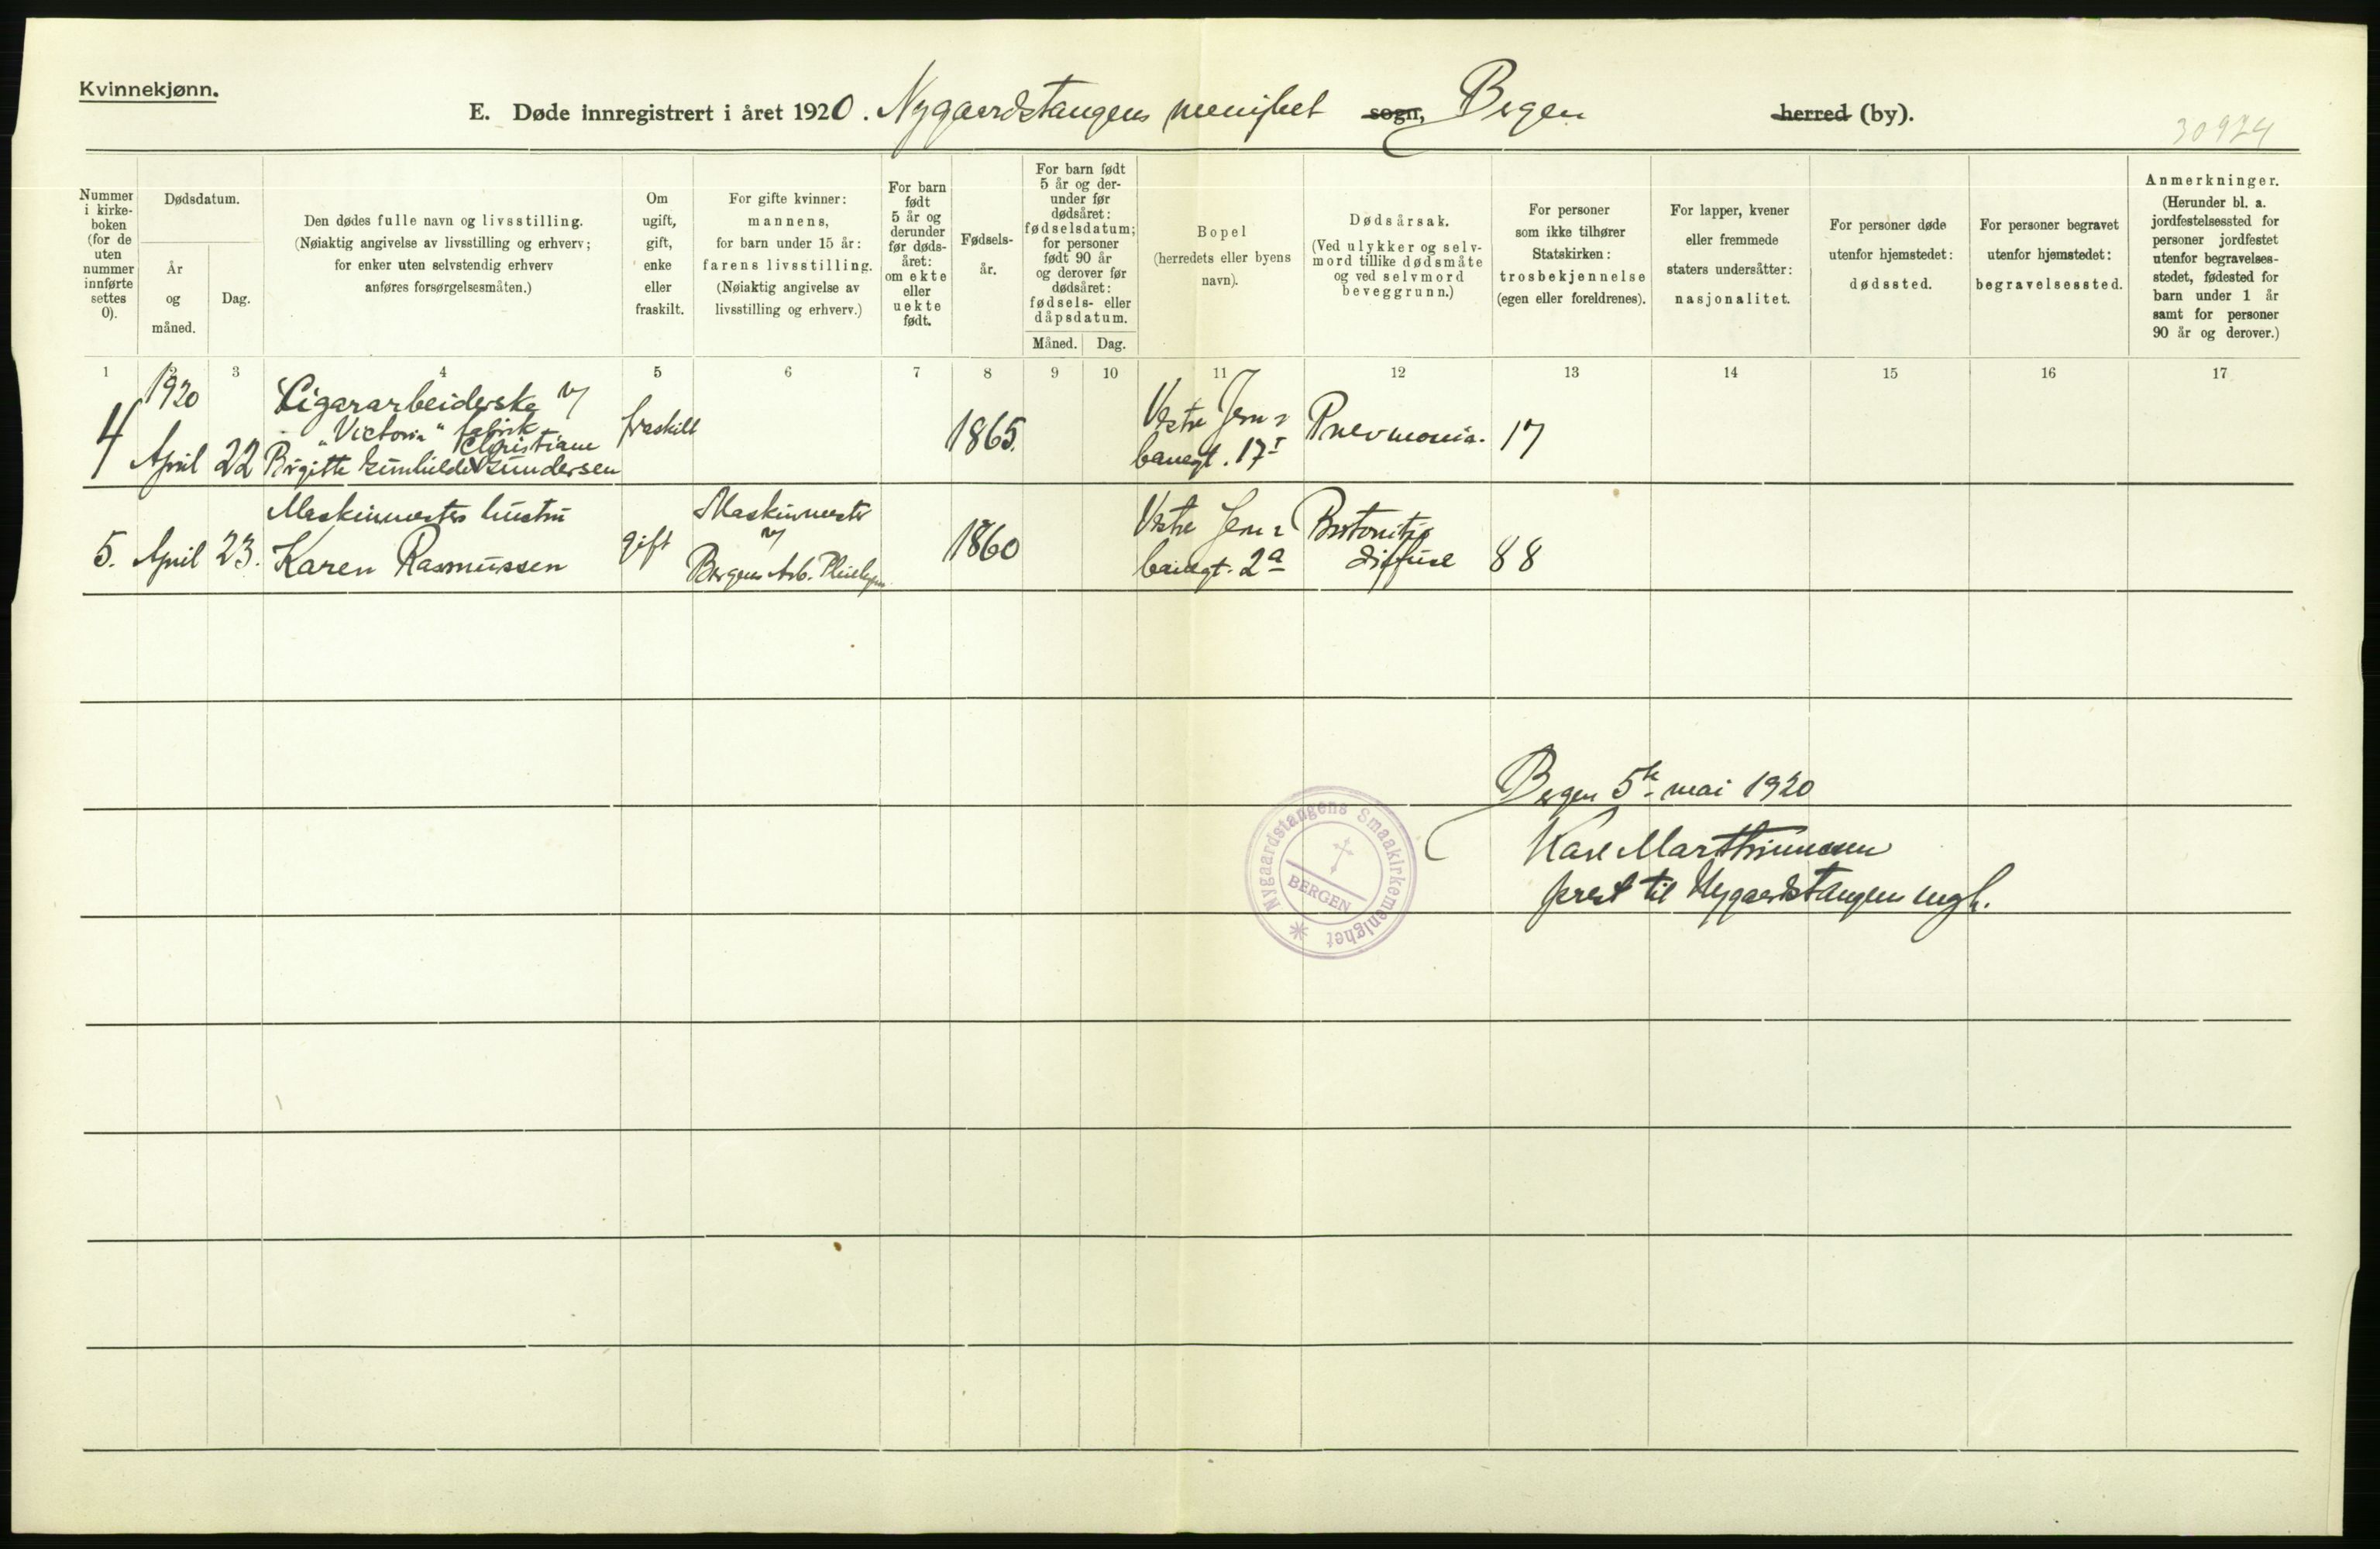 Kvinnekjønn.
E. Døde innregistrert i året 1920. Nygaardstangens menighet sogn, Bergen herred (by).
30924
Nummer i kirkeboken (for de uten nummer innførte settes 0).
Dødsdatum.
År og måned.
Dag.
Den dødes fulle navn og livsstilling.
(Nøiaktig angivelse av livsstilling og erhverv;
for enker uten selvstendig erhverv
anføres forsørgelsesmåten.)
Om
ugift,
gift,
enke
eller
fraskilt.
For gifte kvinner:
mannens,
for barn under 15 år:
farens livsstilling.
(Nøiaktig angivelse av
livsstilling og erhverv.)
For barn
født
5 år og
derunder
før døds-
året:
om ekte
eller
uekte
født.
Fødsels-
år.
For barn født
5 år og der-
under før
dødsåret:
fødselsdatum;
for personer
født 90 år
og derover før
dødsåret:
fødsels- eller
dåpsdatum.
Måned. Dag.
Bopel
(herredets eller byens
navn).
Dødsårsak.
(Ved ulykker og selv-
mord tillike dødsmåte
og ved selvmord
beveggrunn.)
For personer
som ikke tilhører
Statskirken:
trosbekjennelse
(egen eller foreldrenes).
For lapper, kvener
eller fremmede
staters undersåtter:
nasjonalitet.
For personer døde
utenfor hjemstedet:
dødssted.
For personer begravet
utenfor hjemstedet:
begravelsessted.
Anmerkninger.
(Herunder bl. a.
jordfestelsessted for
personer jordfestet
utenfor begravelses-
stedet, fødested for
barn under 1 år
samt for personer
90 år og derover.)
1 2 3 4 5 6 7 8 9 10 11 12 13 14 15 16 17
1920
Cigararbeiderske v/
"Victoria" fabrik
Christiane
4 April 22 Birgitte Gunhilde Gundersen fraskilt 1865. Vestre Jern-
banegt. 17 I Pnevmonia. 17
Maskinmesters hustru
5. April 23. Karen Rasmussen gift Maskinmester
v/
Bergens Arb. 1860 Vestre Jern-
banegt. 2a diffuse 88
Bergen 5te mai 1920
Karl Marthinussen
prest til Nygaardstangen mgh.
Nygaardstangens Smaakirkemenighet
BERGEN